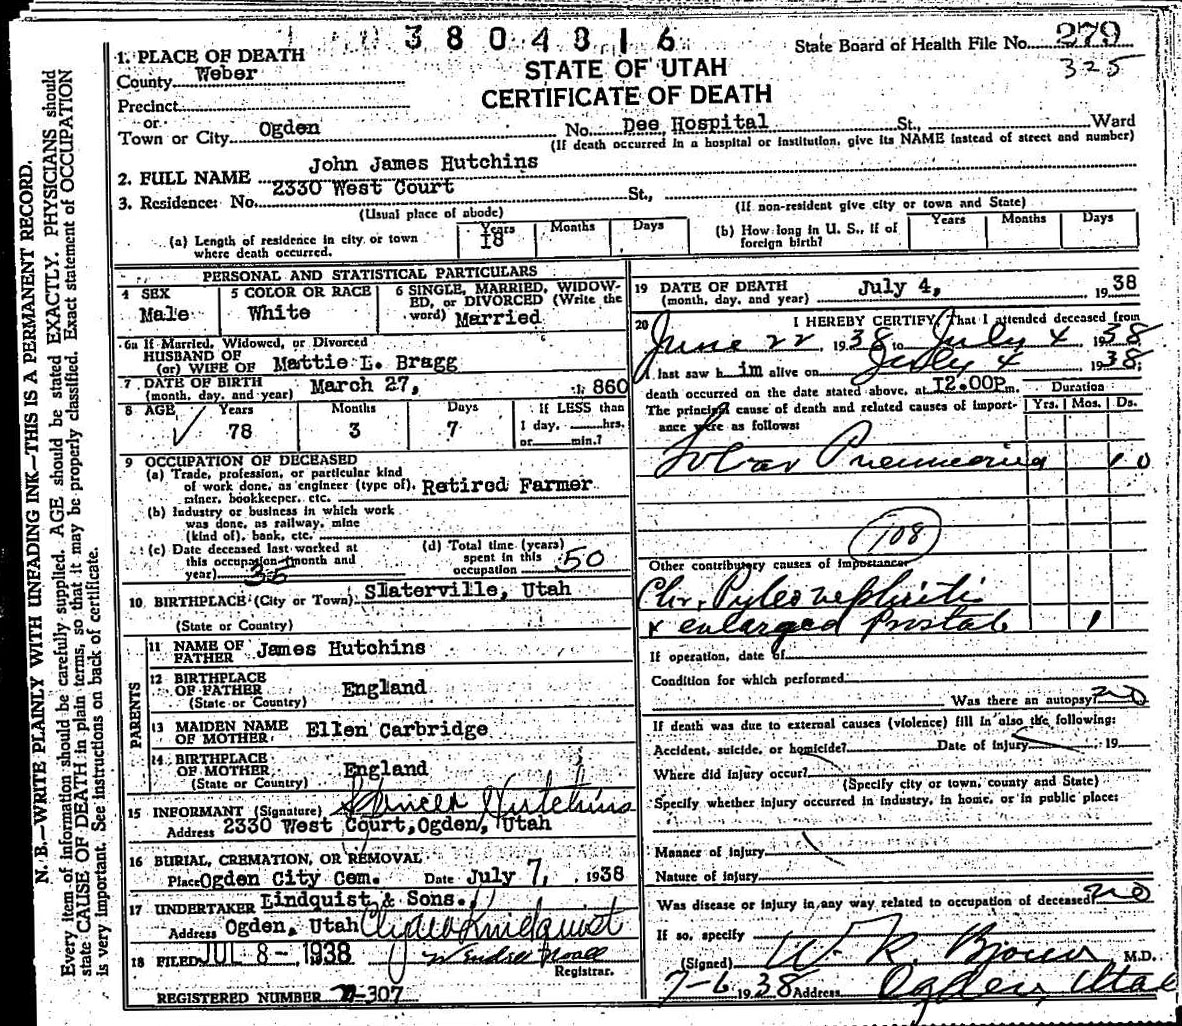 3804316
State Board of Health File No. 279
325
STATE OF UTAH
CERTIFICATE OF DEATH
1. PLACE OF DEATH
County Weber
Precinct
or
Town or City Ogden No. Dee Hospital St., Ward
(If death occurred in a hospital or institution, give its NAME instead of street and number)
2. FULL NAME John James Hutchins
3. Residence: No. 2330 West Court St.,
(Usual place of abode) (If non-resident give city or town and State)
(a) Length of residence in city or town where death occurred. Years 18 Months Days
(b) How long in U. S., if of foreign birth? Years Months Days
PERSONAL AND STATISTICAL PARTICULARS
4 SEX Male
5 COLOR OR RACE White
6 SINGLE, MARRIED, WIDOWED, or DIVORCED (Write the word) Married
6a If Married, Widowed, or Divorced
HUSBAND OF
(or) WIFE OF Mattie L. Bragg
7 DATE OF BIRTH
(month, day, and year) March 27, 1860
8 AGE Years 78 Months 3 Days 7
If LESS than
1 day, hrs.
or min.?
9 OCCUPATION OF DECEASED
(a) Trade, profession, or particular kind
of work done, as engineer (type of), Retired Farmer
miner, bookkeeper, etc.
(b) Industry or business in which work
was done, as railway, mine
(kind of), bank, etc.
(c) Date deceased last worked at
this occupation (month and
year) 35
(d) Total time (years)
spent in this
occupation 50
10 BIRTHPLACE (City or Town) Slaterville, Utah
(State or Country)
PARENTS
11 NAME OF
FATHER James Hutchins
12 BIRTHPLACE
OF FATHER England
(State or Country)
13 MAIDEN NAME
OF MOTHER Ellen Carbridge
14 BIRTHPLACE
OF MOTHER England
(State or Country)
15 INFORMANT (Signature) Spencer Hutchins
Address 2330 West Court, Ogden, Utah
16 BURIAL, CREMATION, OR REMOVAL
Place Ogden City Cem. Date July 7, 1938
17 UNDERTAKER Lindquist & Sons.
Address Ogden, Utah Clyde Lindquist
18 FILED JUL 8 - 1938
Registrar.
REGISTERED NUMBER -307
19 DATE OF DEATH
(month, day, and year) July 4, 1938
20 I HEREBY CERTIFY, That I attended deceased from
June 22, 1938 to July 4, 1938
I last saw him alive on July 4 1938;
death occurred on the date stated above, at 12.00P m.
The principal cause of death and related causes of importance were as follows:
Duration
Yrs. Mos. Ds.
Lobar Pneumonia 10
108
Other contributory causes of importance:
Chr. Pyleonephritis
& enlarged prostate 1
If operation, date of
Condition for which performed
Was there an autopsy? no
If death was due to external causes (violence) fill in also the following:
Accident, suicide, or homicide? Date of injury 19
Where did injury occur?
(Specify city or town, county and State)
Specify whether injury occurred in industry, in home, or in public place:
Manner of injury
Nature of injury
Was disease or injury in any way related to occupation of deceased? no
If so, specify
(Signed) W. R. Brown M.D.
7-6 1938 Address Ogden, Utah
N. B.—WRITE PLAINLY WITH UNFADING INK—THIS IS A PERMANENT RECORD.
Every item of information should be carefully supplied. AGE should be stated EXACTLY. PHYSICIANS should
state CAUSE OF DEATH in plain terms, so that it may be properly classified. Exact statement of OCCUPATION
is very important. See instructions on back of certificate.